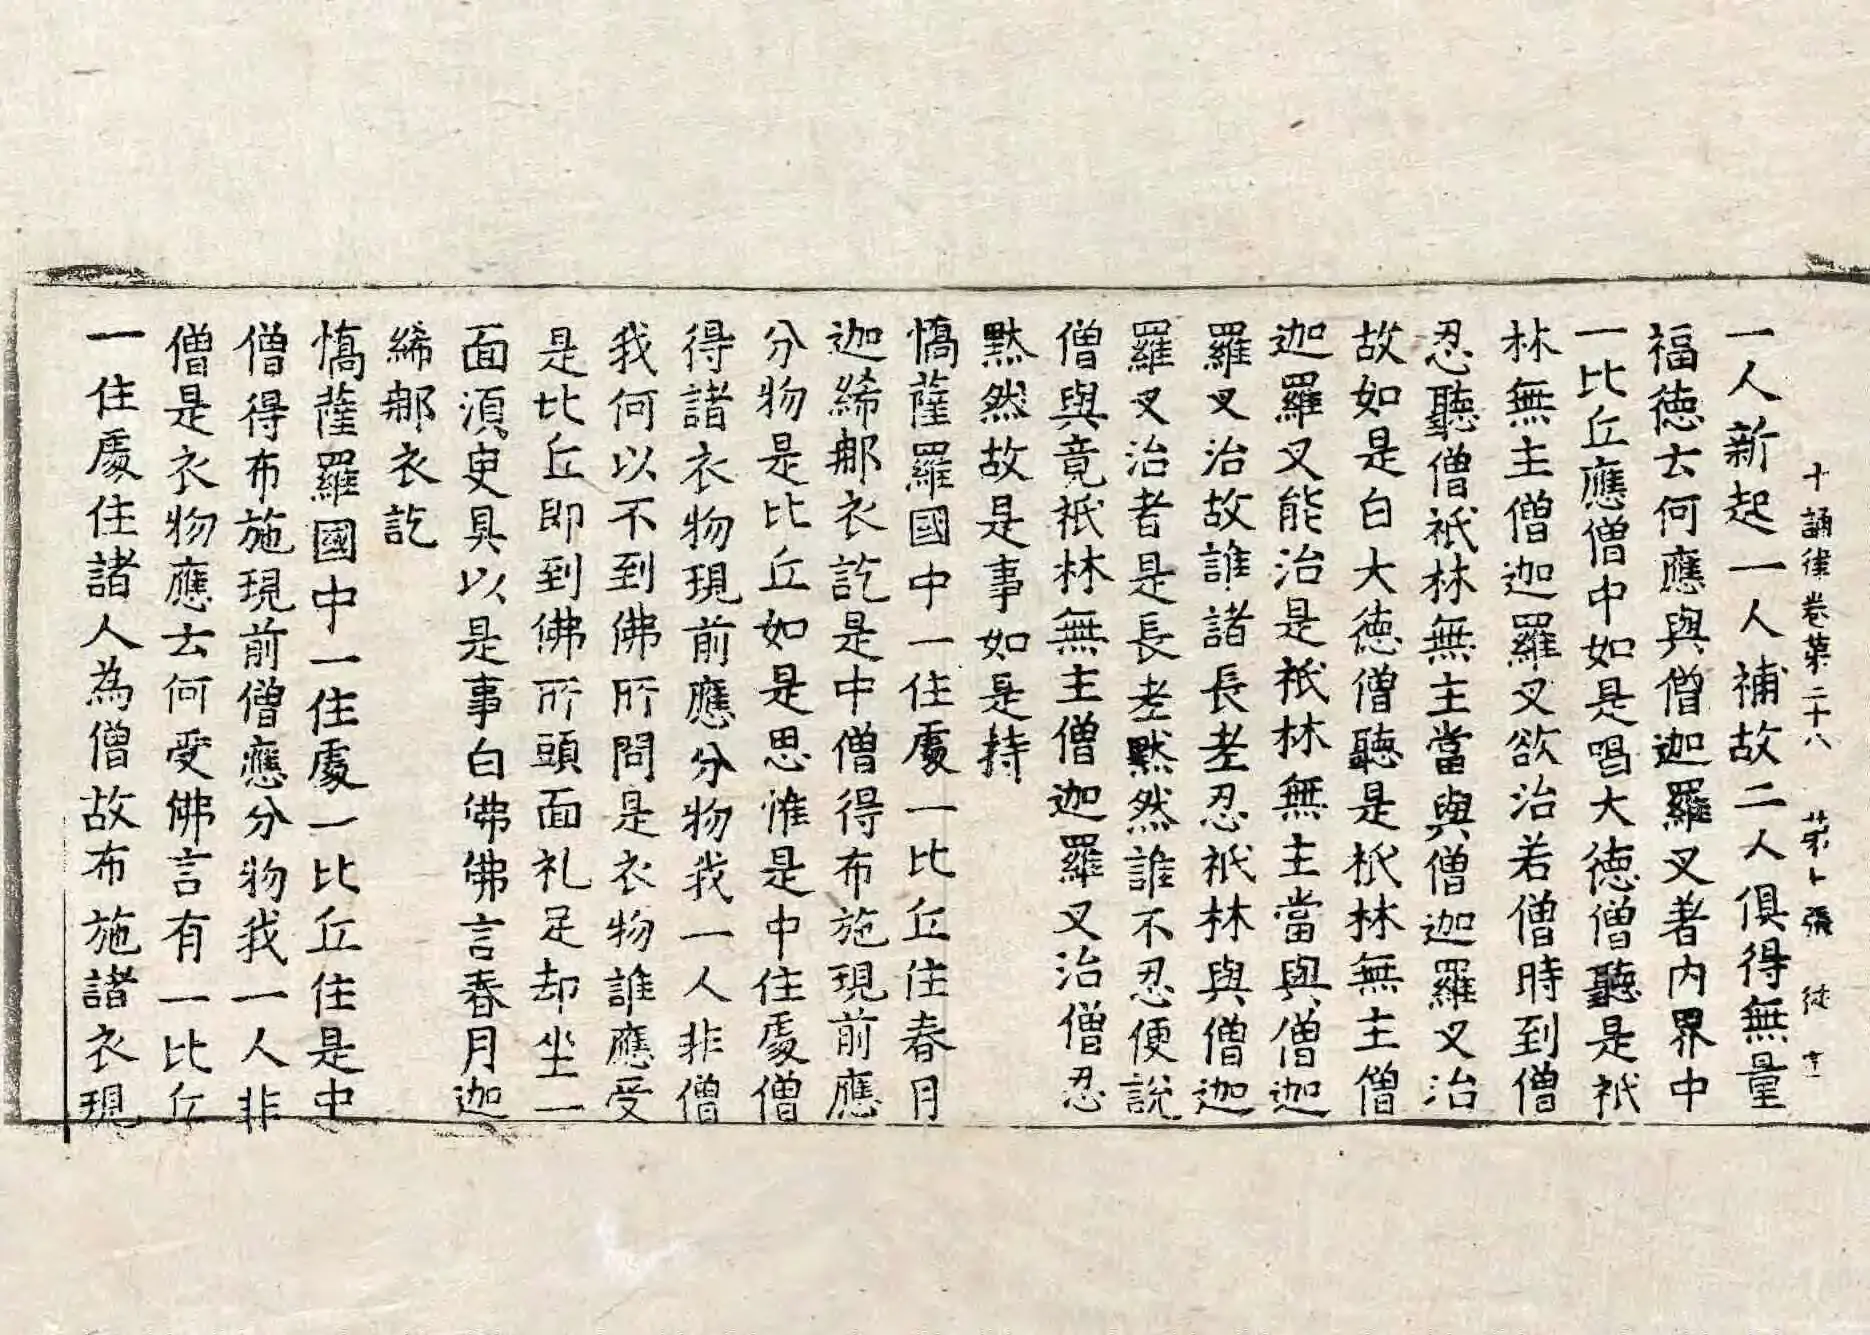 十誦律卷苐二十八　苐卜張　徒　
一人新起一人補故二人俱得無量
福徳去何應與僧迦羅叉者内界中
一比丘應僧中如是唱大徳僧聽是祇
林無主僧迦羅叉欲治若僧時到僧
忍聽僧祇林無主當與僧迦羅叉治
故如是白大徳僧聽是祇林無主僧
迦羅叉能治是祇林無主當與僧迦
羅叉治故誰諸長老忍祇林與僧迦
羅叉治者是長老黙然誰不忍便說
僧與竟祇林無主僧迦羅叉治僧忍
黙然故是事如是持
憍薩羅國中一住處一比丘住春月
迦絺那衣訖是中僧得布施現前應
分物是比丘如是思惟是中住處僧
得諸衣物現前應分物我一人非僧
我何以不到佛所問是衣物誰應受
是比丘即到佛所頭面礼足却坐一
面湏臾具以是事白佛佛言春月迦
絺那衣訖
憍薩羅國中一住處一比丘住是中
僧得布施現前僧應分物我一人非
僧是衣物應去何受佛言有一比丘
一住處住諸人為僧故布施諸衣現